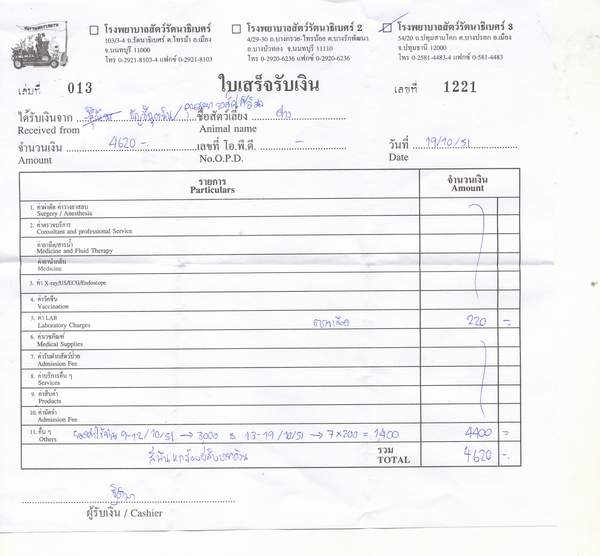 โรงพยาบาลสัตว์รัตนาธิเบศร์
103/3-4 ถ.รัตนาธิเบศร์ ต.ไทรม้า อ.เมือง
จ.นนทบุรี 11000
โทร 0-2921-8103-4 แฟกซ์ 0-2921-8103
โรงพยาบาลสัตว์รัตนาธิเบศร์ 2
4/29-30 ถ.บางกรวย-ไทรน้อย ต.บางรักพัฒนา
อ.บางบัวทอง จ.นนทบุรี 11110
โทร 0-2920-6236 แฟกซ์ 0-2920-6236
โรงพยาบาลสัตว์รัตนาธิเบศร์ 3
54/20 ถ.ปทุมสามโคก ต.บางปรอก อ.เมือง
จ.ปทุมธานี 12000
โทร 0-2581-4483-4 แฟกซ์ 0-581-4483
เล่มที่ 013
ใบเสร็จรับเงิน
เลขที่ 1221
ได้รับเงินจาก ชื่อสัตว์เลี้ยง
Received from Animal name
จำนวนเงิน 4620 - เลขที่ โอ.พี.ดี. - วันที่ 19/10/51
Amount No.O.P.D. Date
รายการ จำนวนเงิน
Particulars Amount
1. ค่าผ่าตัด ค่าวางยาสลบ
Surgery / Anesthesia
2. ค่าตรวจบริการ
Consultant and professional Service
ค่ายาฉีด/สารน้ำ
Medicine and Fluid Therapy
ค่ายากลับบ้าน
Medicine
3. ค่า X-ray/US/ECG/Endoscope
4. ค่าวัคซีน
Vaccination
5. ค่า LAB ตรวจเลือด 220 -
Laboratory Charges
6. ค่าเวชภัณฑ์
Medical Supplies
7. ค่ารับฝากสัตว์ป่วย
Admission Fee
8. ค่าบริการอื่น ๆ
Services
9. ค่าสินค้า
Products
10. ค่ามัดจำ
Admission Fee
11. อื่น ๆ 9-12/10/51 → 3000 & 13-19/10/51 → 7×200 = 1,400 4400 -
Others
สี่พันหกร้อยยี่สิบบาทถ้วน รวม 4620 -
TOTAL
ผู้รับเงิน / Cashier